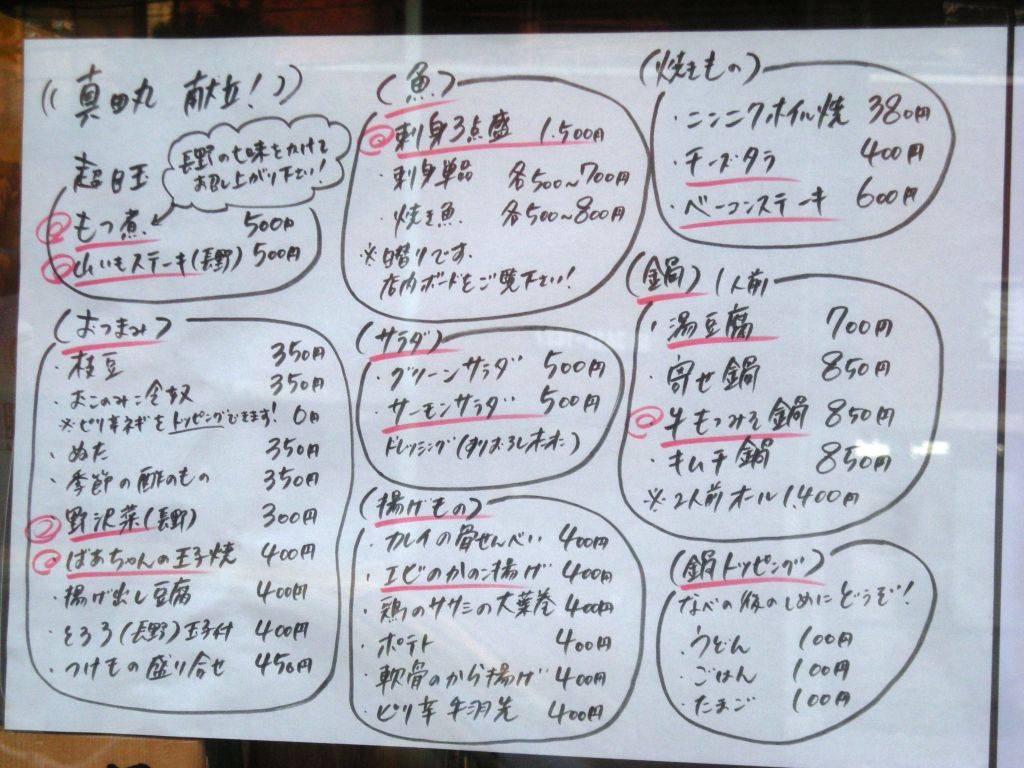 ((真田丸 献立!))
超目玉
長野の七味をかけて
お召し上がり下さい!
もつ煮 500円
山いもステーキ(長野) 500円
(おつまみ)
・枝豆 350円
・おこのみ冷奴 350円
※ピリ辛ネギをトッピングできます! 0円
・ぬた 350円
・季節の酢のもの 350円
野沢菜(長野) 300円
ばあちゃんの玉子焼 400円
・揚げ出し豆腐 400円
・とろろ(長野)玉子付 400円
・つけもの盛り合せ 450円
(魚)
刺身3点盛 1.500円
・刺身単品 各500~700円
・焼き魚 各500~800円
※日替りです。
店内ボードをご覧下さい!
(サラダ)
・グリーンサラダ 500円
・サーモンサラダ 500円
ドレッシング(すりおろしオニオン)
(揚げもの)
・カレイの骨せんべい 400円
・エビのかのこ揚げ 400円
・鶏のササミの大葉巻 400円
・ポテト 400円
・軟骨のから揚げ 400円
・ピリ辛手羽先 400円
(焼きもの)
・ニンニクホイル焼 380円
・チーズタラ 400円
・ベーコンステーキ 600円
(鍋) 1人前
・湯豆腐 700円
・寄せ鍋 850円
牛もつみそ鍋 850円
・キムチ鍋 850円
※2人前オール1.400円
(鍋トッピング)
なべの後のしめにどうぞ!
・うどん 100円
・ごはん 100円
・たまご 100円